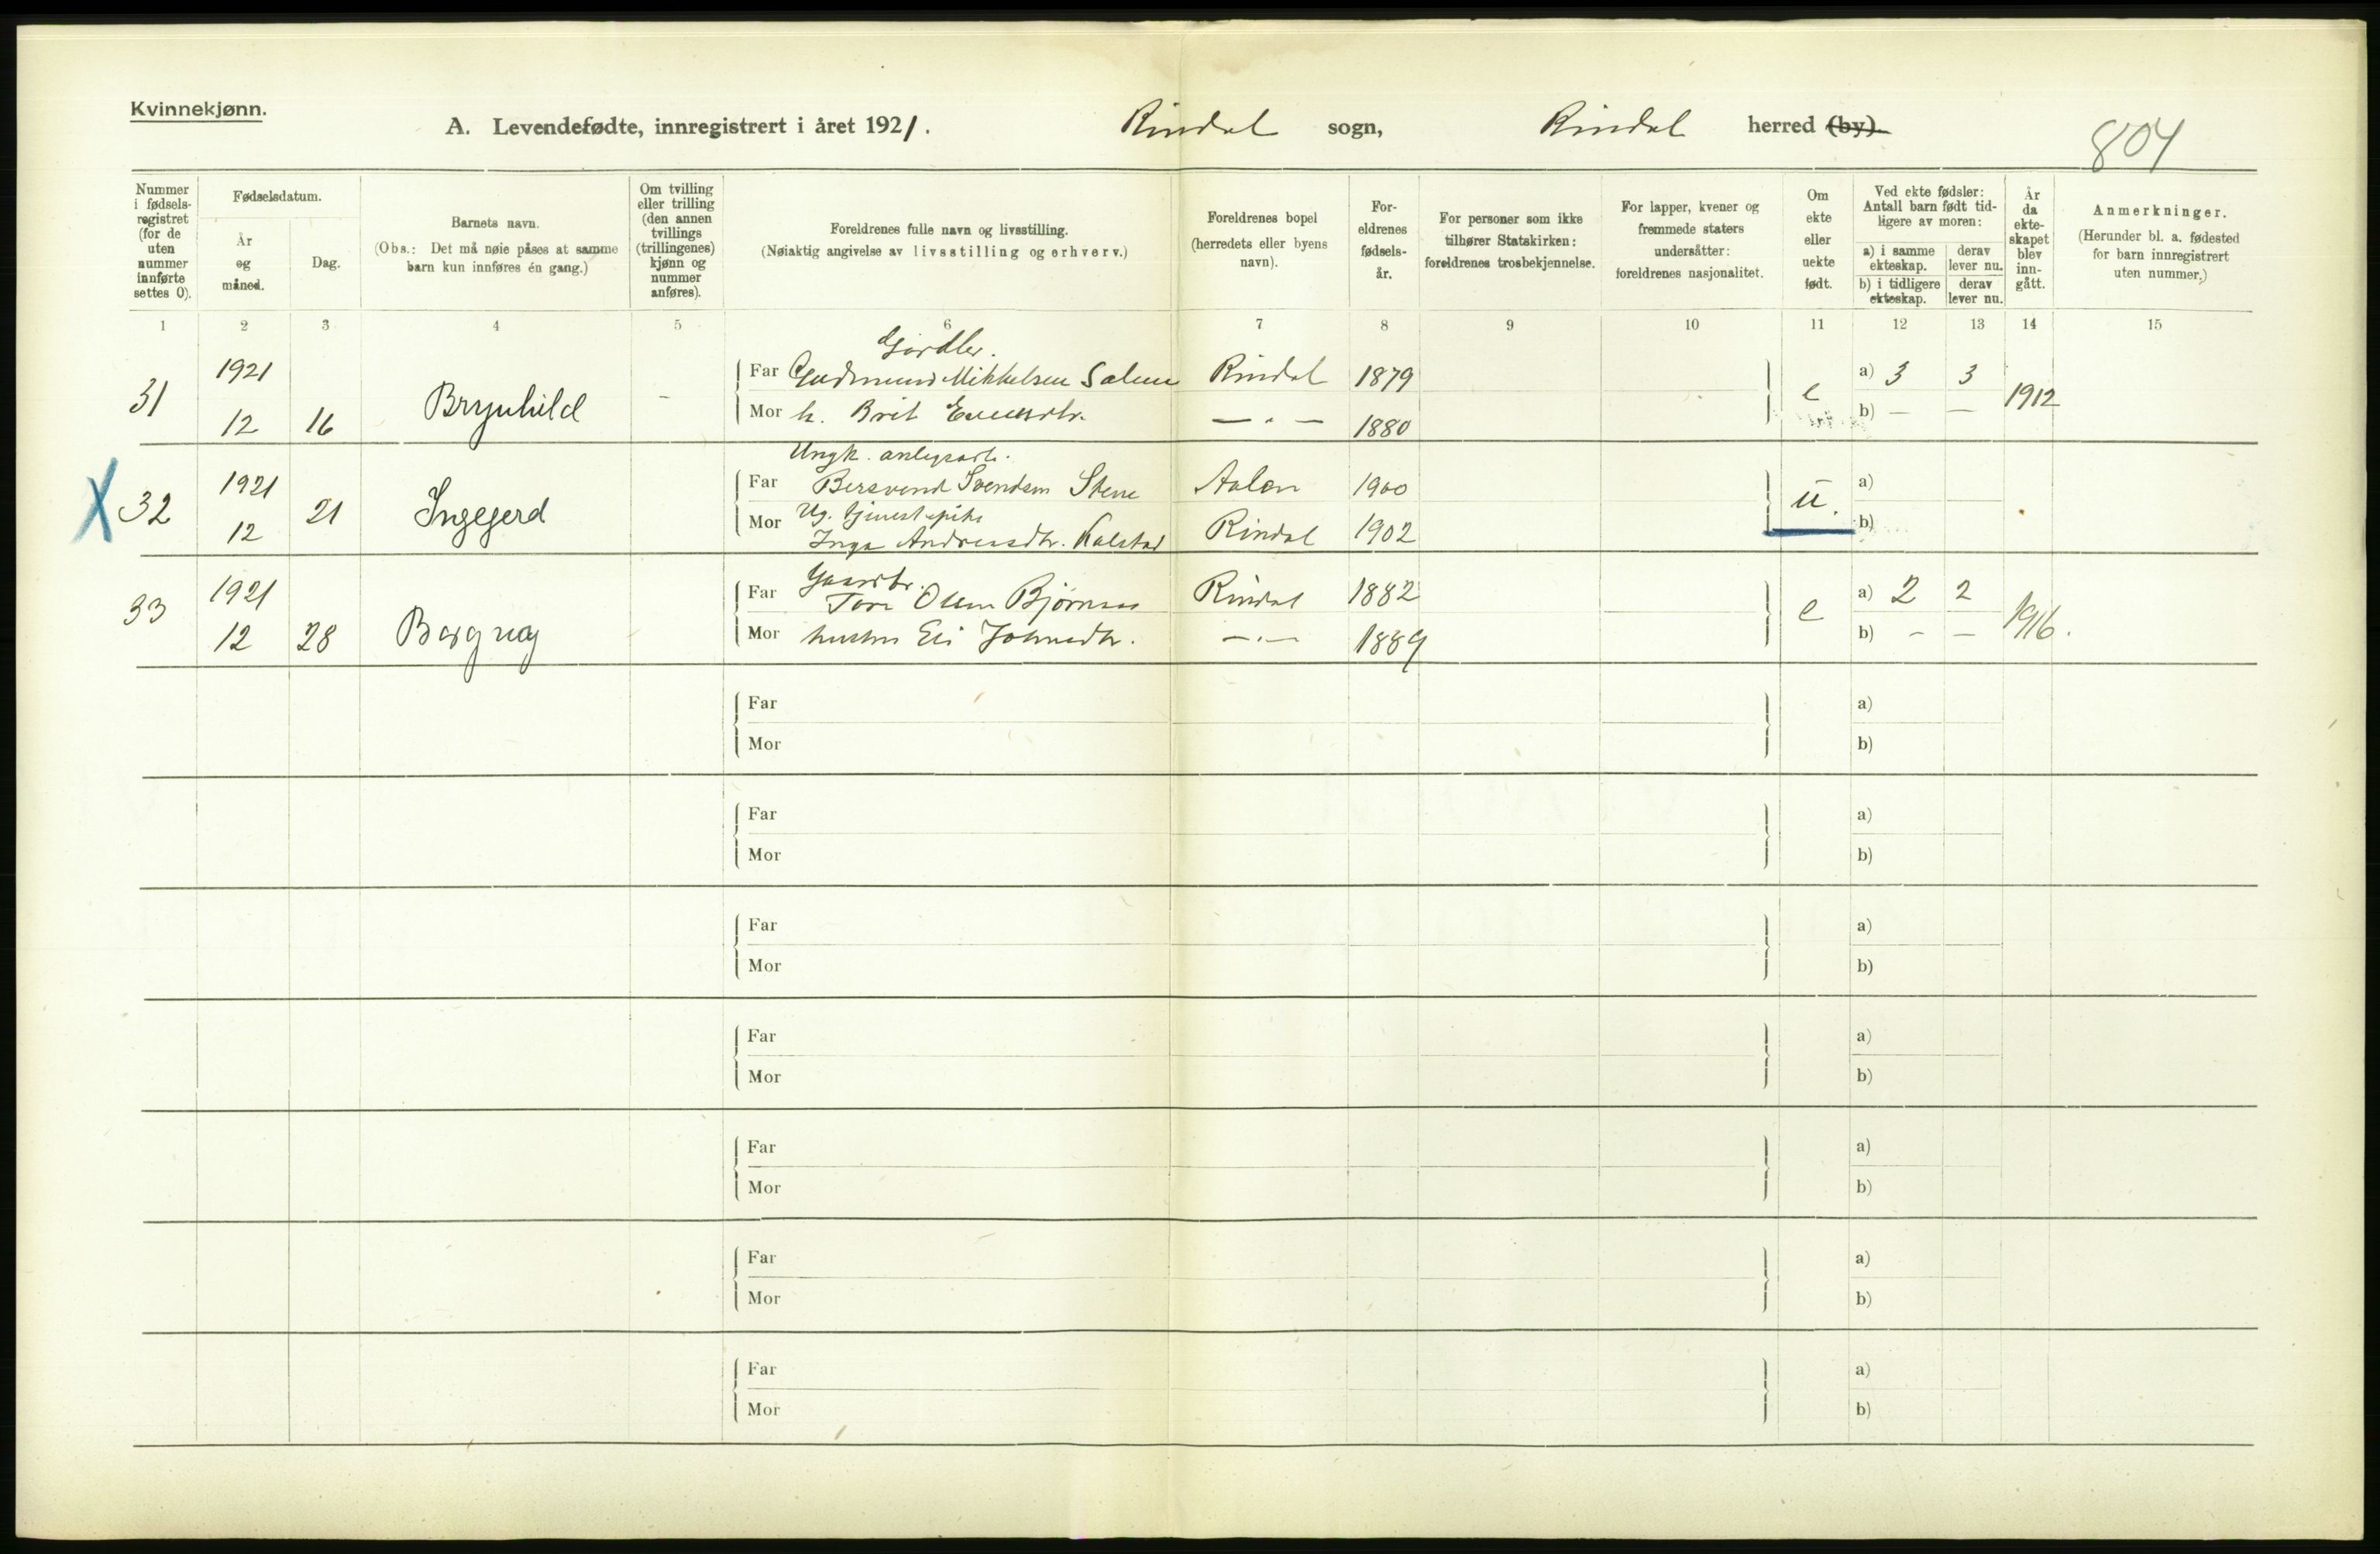 Kvinnekjønn.
A. Levendefødte, innregistrert i året 1921. Rindal sogn, Rindal herred (by).
804
Nummer i fødsels-registret (for de uten nummer innførte settes 0).
Fødselsdatum.
År og måned.
Dag.
Barnets navn.
(Obs.: Det må nøie påses at samme barn kun innføres én gang.)
Om tvilling eller trilling (den annen tvillings (trillingenes) kjønn og nummer anføres).
Foreldrenes fulle navn og livsstilling.
(Nøiaktig angivelse av livsstilling og erhverv.)
Foreldrenes bopel (herredets eller byens navn).
For-eldrenes fødsels-år.
For personer som ikke tilhører Statskirken: foreldrenes trosbekjennelse.
For lapper, kvener og fremmede staters undersåtter: foreldrenes nasjonalitet.
Om ekte eller uekte født.
Ved ekte fødsler: Antall barn født tid-ligere av moren:
a) i samme ekteskap. derav lever nu.
b) i tidligere ekteskap. derav lever nu.
År da ekte-skapet blev inn-gått.
Anmerkninger.
(Herunder bl. a. fødested for barn innregistrert uten nummer.)
1 2 3 4 5 6 7 8 9 10 11 12 13 14 15
Far Gudmund Mikkelsen Rindal 1879 a) 3 3
31 1921 12 16 Brynhild - e 1912
Mor h. Brit — " — 1880 b) — —
Ungk.
Far Svendsen Stene Aalen 1900 a)
X 32 1921 12 21 Ingegerd u.
Ug. tjenestepike
Mor Inga Andreasdtr. Kalstad Rindal 1902 b)
Gaardbr.
Far Tore Olsen Rindal 1882 a) 2 2
33 1921 12 28 Borgny e 1916.
Mor hustru Eli — " — 1889 b) - —
Far a)
Mor b)
Far a)
Mor b)
Far a)
Mor b)
Far a)
Mor b)
Far a)
Mor b)
Far a)
Mor b)
Far a)
Mor b)